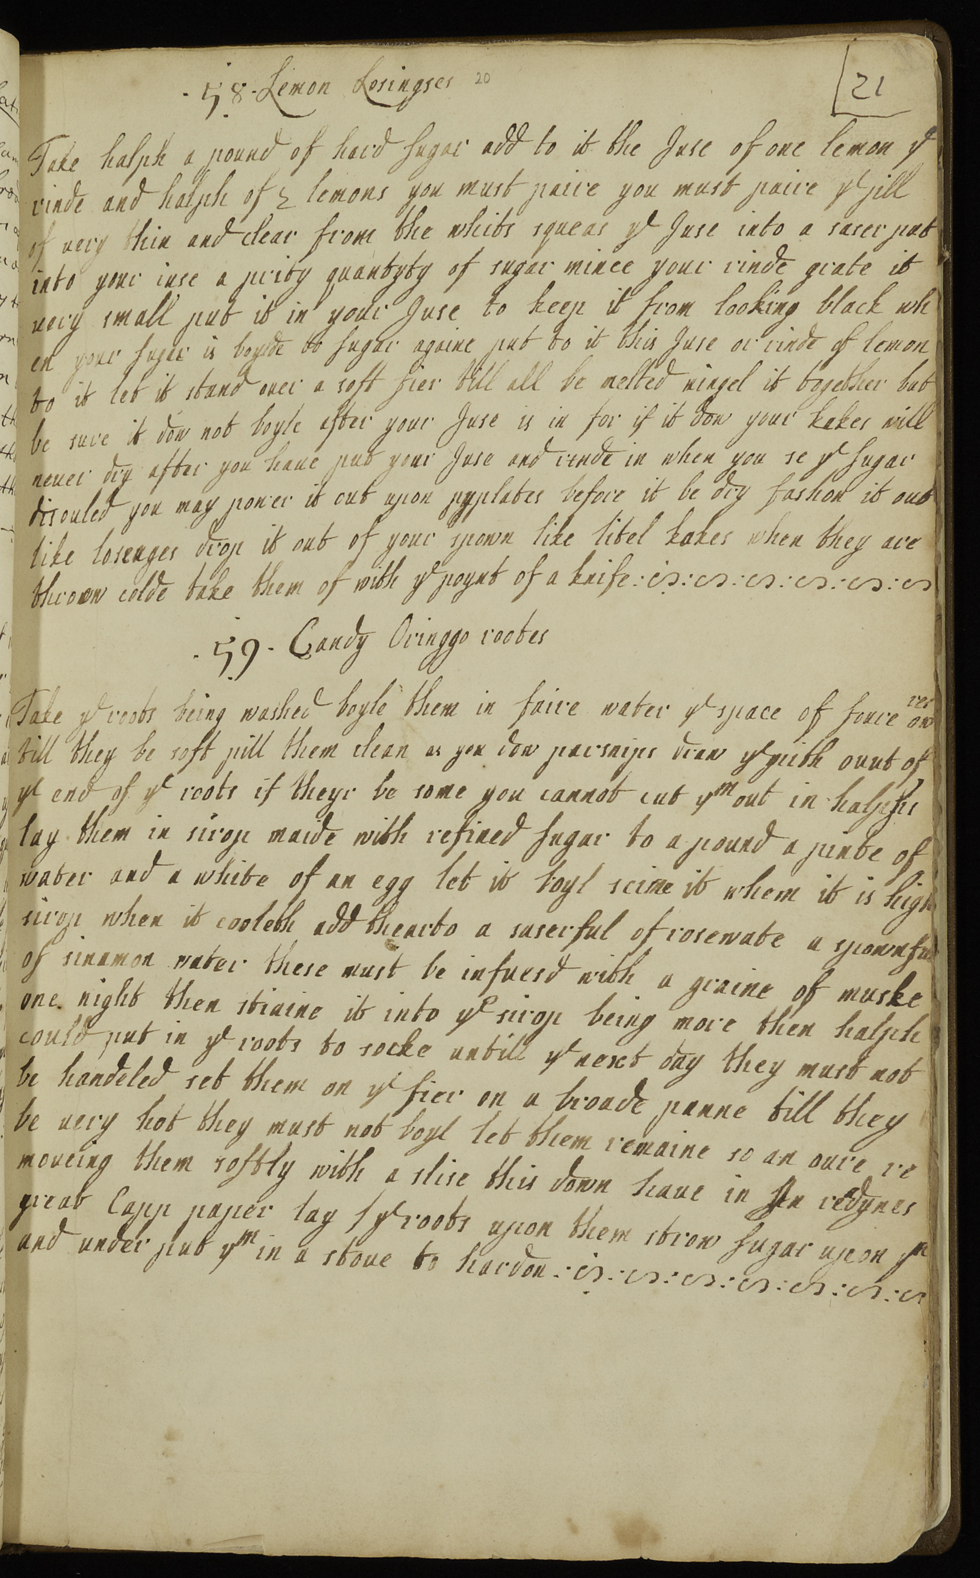 21
·58· Lemon Losingses 20
Take halph a pound of hard sugar add to it the Juse of one lemon yͤ
rinde and halph of 2 lemons you must paire you must paire yͤ pill
of very thin and clear from the whits squeas yͤ Juse into a sacer put
into your iuse a prity quantyty of sugar mince your rinde grate it
very small put it in your Juse to keep it from looking black wh
en your sugar is boylde to sugar againe put to it this Juse or rinde of lemon
to it let it stand over a soft fier till all be melted mingel it together but
be sure it dow not boyle after your Juse is in for if it dow your kakes will
never dry after you have put your Juse and rinde in when you se yͤ sugar
disouled you may power it out upon pyplates before it be dry fashon it out
like losenges drop it out of your spown like litel kakes when they are
throw colde take them of with yͤ poynt of a knife
·59· Candy Oringgo rootes
Take yͤ roots being washed boyle them in faire water yͤ space of foure ow
res
till they be soft pill them clean as you dow parsnips draw yͤ pith ouut of
yͤ end of yͤ roots if theyr be some you cannot cut yᵐ out in halphs
lay them in sirop maide with refined sugar to a pound a pinte of
water and a white of an egg let it boyl scime it whem it is high
sirop when it cooleth add thearto a saserful of rosewate a spownful
of sinamon water these must be infuesd with a graine of muske
one night then straine it into yͤ sirop being more then halph
could put in yͤ roots to socke until yͤ next day they must not
be handeled set them on yͤ fier on a broade panne till they
be very hot they must not boyl let them remaine so an oure re
moveing them softly with a slise this down have in redynes
great Capp paper lay yͤ roots upon them strow sugar upon yᵐ
and under put yᵐ in a stove to hardon